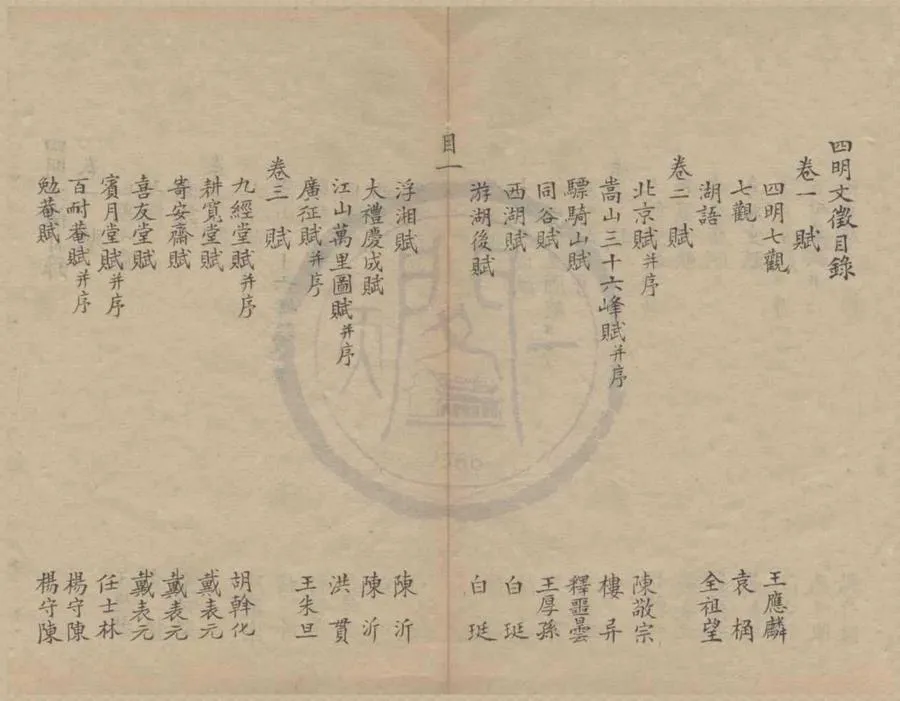 四明文徵目錄
卷一 賦
四明七觀 王應麟
七觀 袁桷
湖語 全祖望
卷二 賦
北京賦并序 陳敬宗
嵩山三十六峰賦并序 樓异
驃騎山賦 釋噩曇
同谷賦 王厚孫
西湖賦 白珽
游湖後賦 白珽
目一
浮湘賦 陳沂
大禮慶成賦 陳沂
江山萬里圖賦并序 洪貫
廣征賦并序 王朱旦
卷三 賦
九經堂賦并序 胡幹化
耕寬堂賦 戴表元
寄安齋賦 戴表元
喜友堂賦 戴表元
賓月堂賦并序 任士林
百耐菴賦并序 楊守陳
勉菴賦 楊守陳